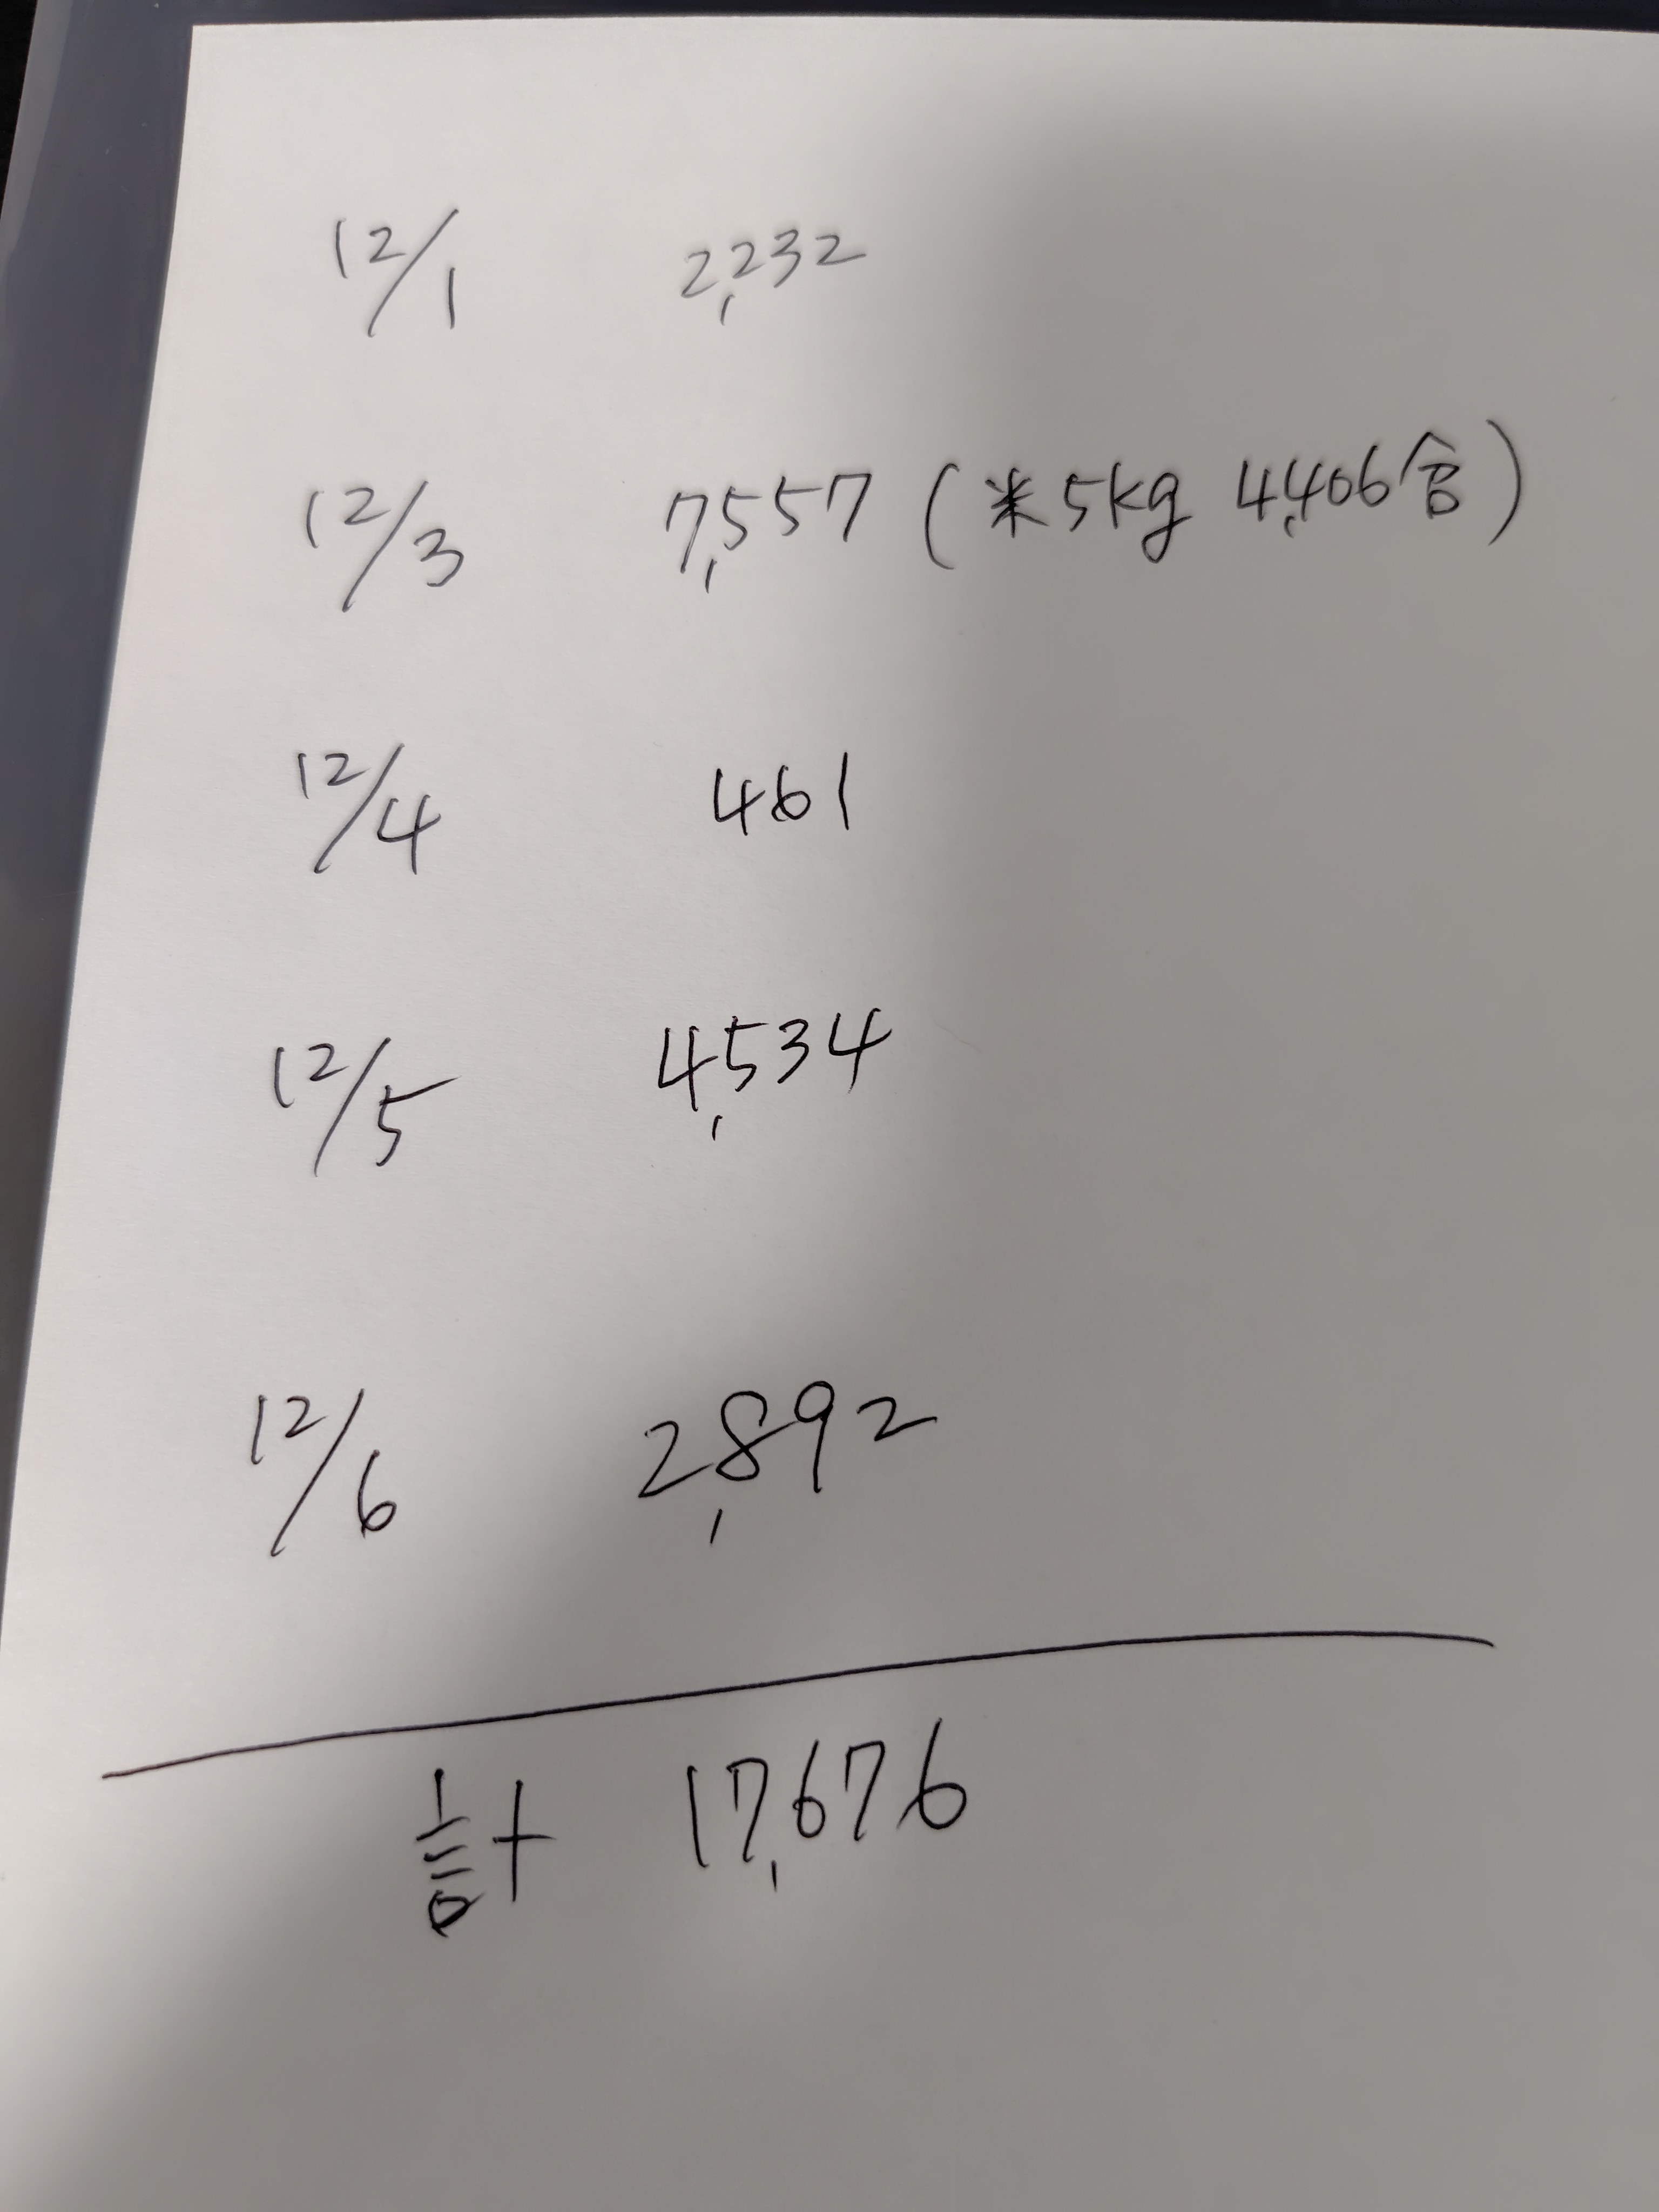 12/1 2,232
12/3 7,557 (米5kg 4,406含)
12/4 461
12/5 4,534
12/6 2,892
計 17,676